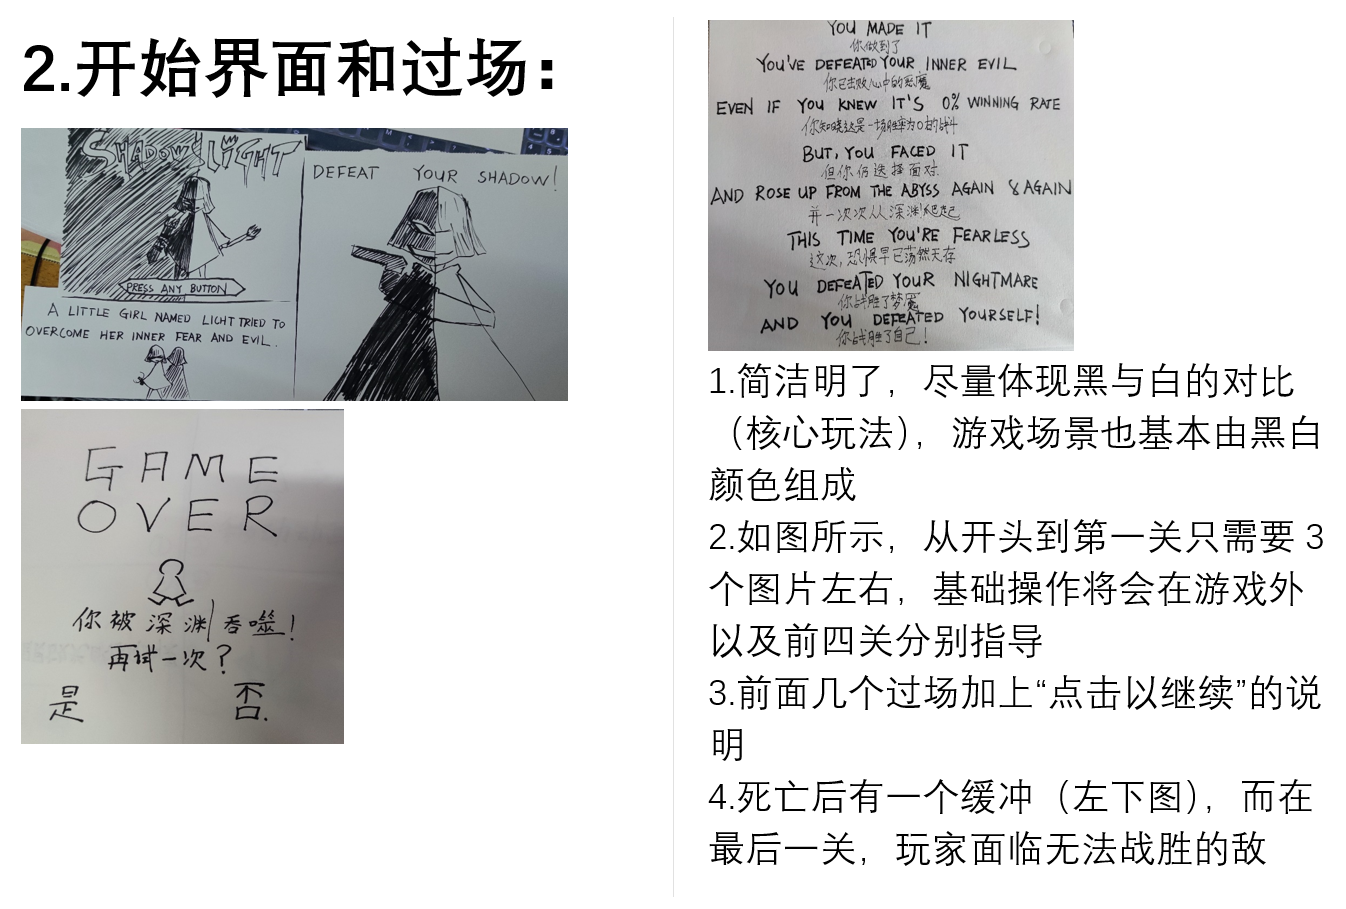 2.开始界面和过场：
SHADOW LIGHT
PRESS ANY BUTTON
A LITTLE GIRL NAMED LIGHT TRIED TO
OVERCOME HER INNER FEAR AND EVIL.
DEFEAT YOUR SHADOW!
GAME
OVER
你被深渊吞噬!
再试一次?
是 否.
YOU MADE IT
你做到了
YOU'VE DEFEATED YOUR INNER EVIL
你已击败心中的恶魔
EVEN IF YOU KNEW IT'S 0% WINNING RATE
你知晓这是一场胜率为0的战斗
BUT, YOU FACED IT
但你仍选择面对
AND ROSE UP FROM THE ABYSS AGAIN & AGAIN
并一次次从深渊爬起
THIS TIME YOU'RE FEARLESS
这次,恐惧早已荡然无存
YOU DEFEATED YOUR NIGHTMARE
你战胜了梦魇
AND YOU DEFEATED YOURSELF!
你战胜了自己!
1.简洁明了，尽量体现黑与白的对比
（核心玩法），游戏场景也基本由黑白
颜色组成
2.如图所示，从开头到第一关只需要 3
个图片左右，基础操作将会在游戏外
以及前四关分别指导
3.前面几个过场加上“点击以继续”的说
明
4.死亡后有一个缓冲（左下图），而在
最后一关，玩家面临无法战胜的敌